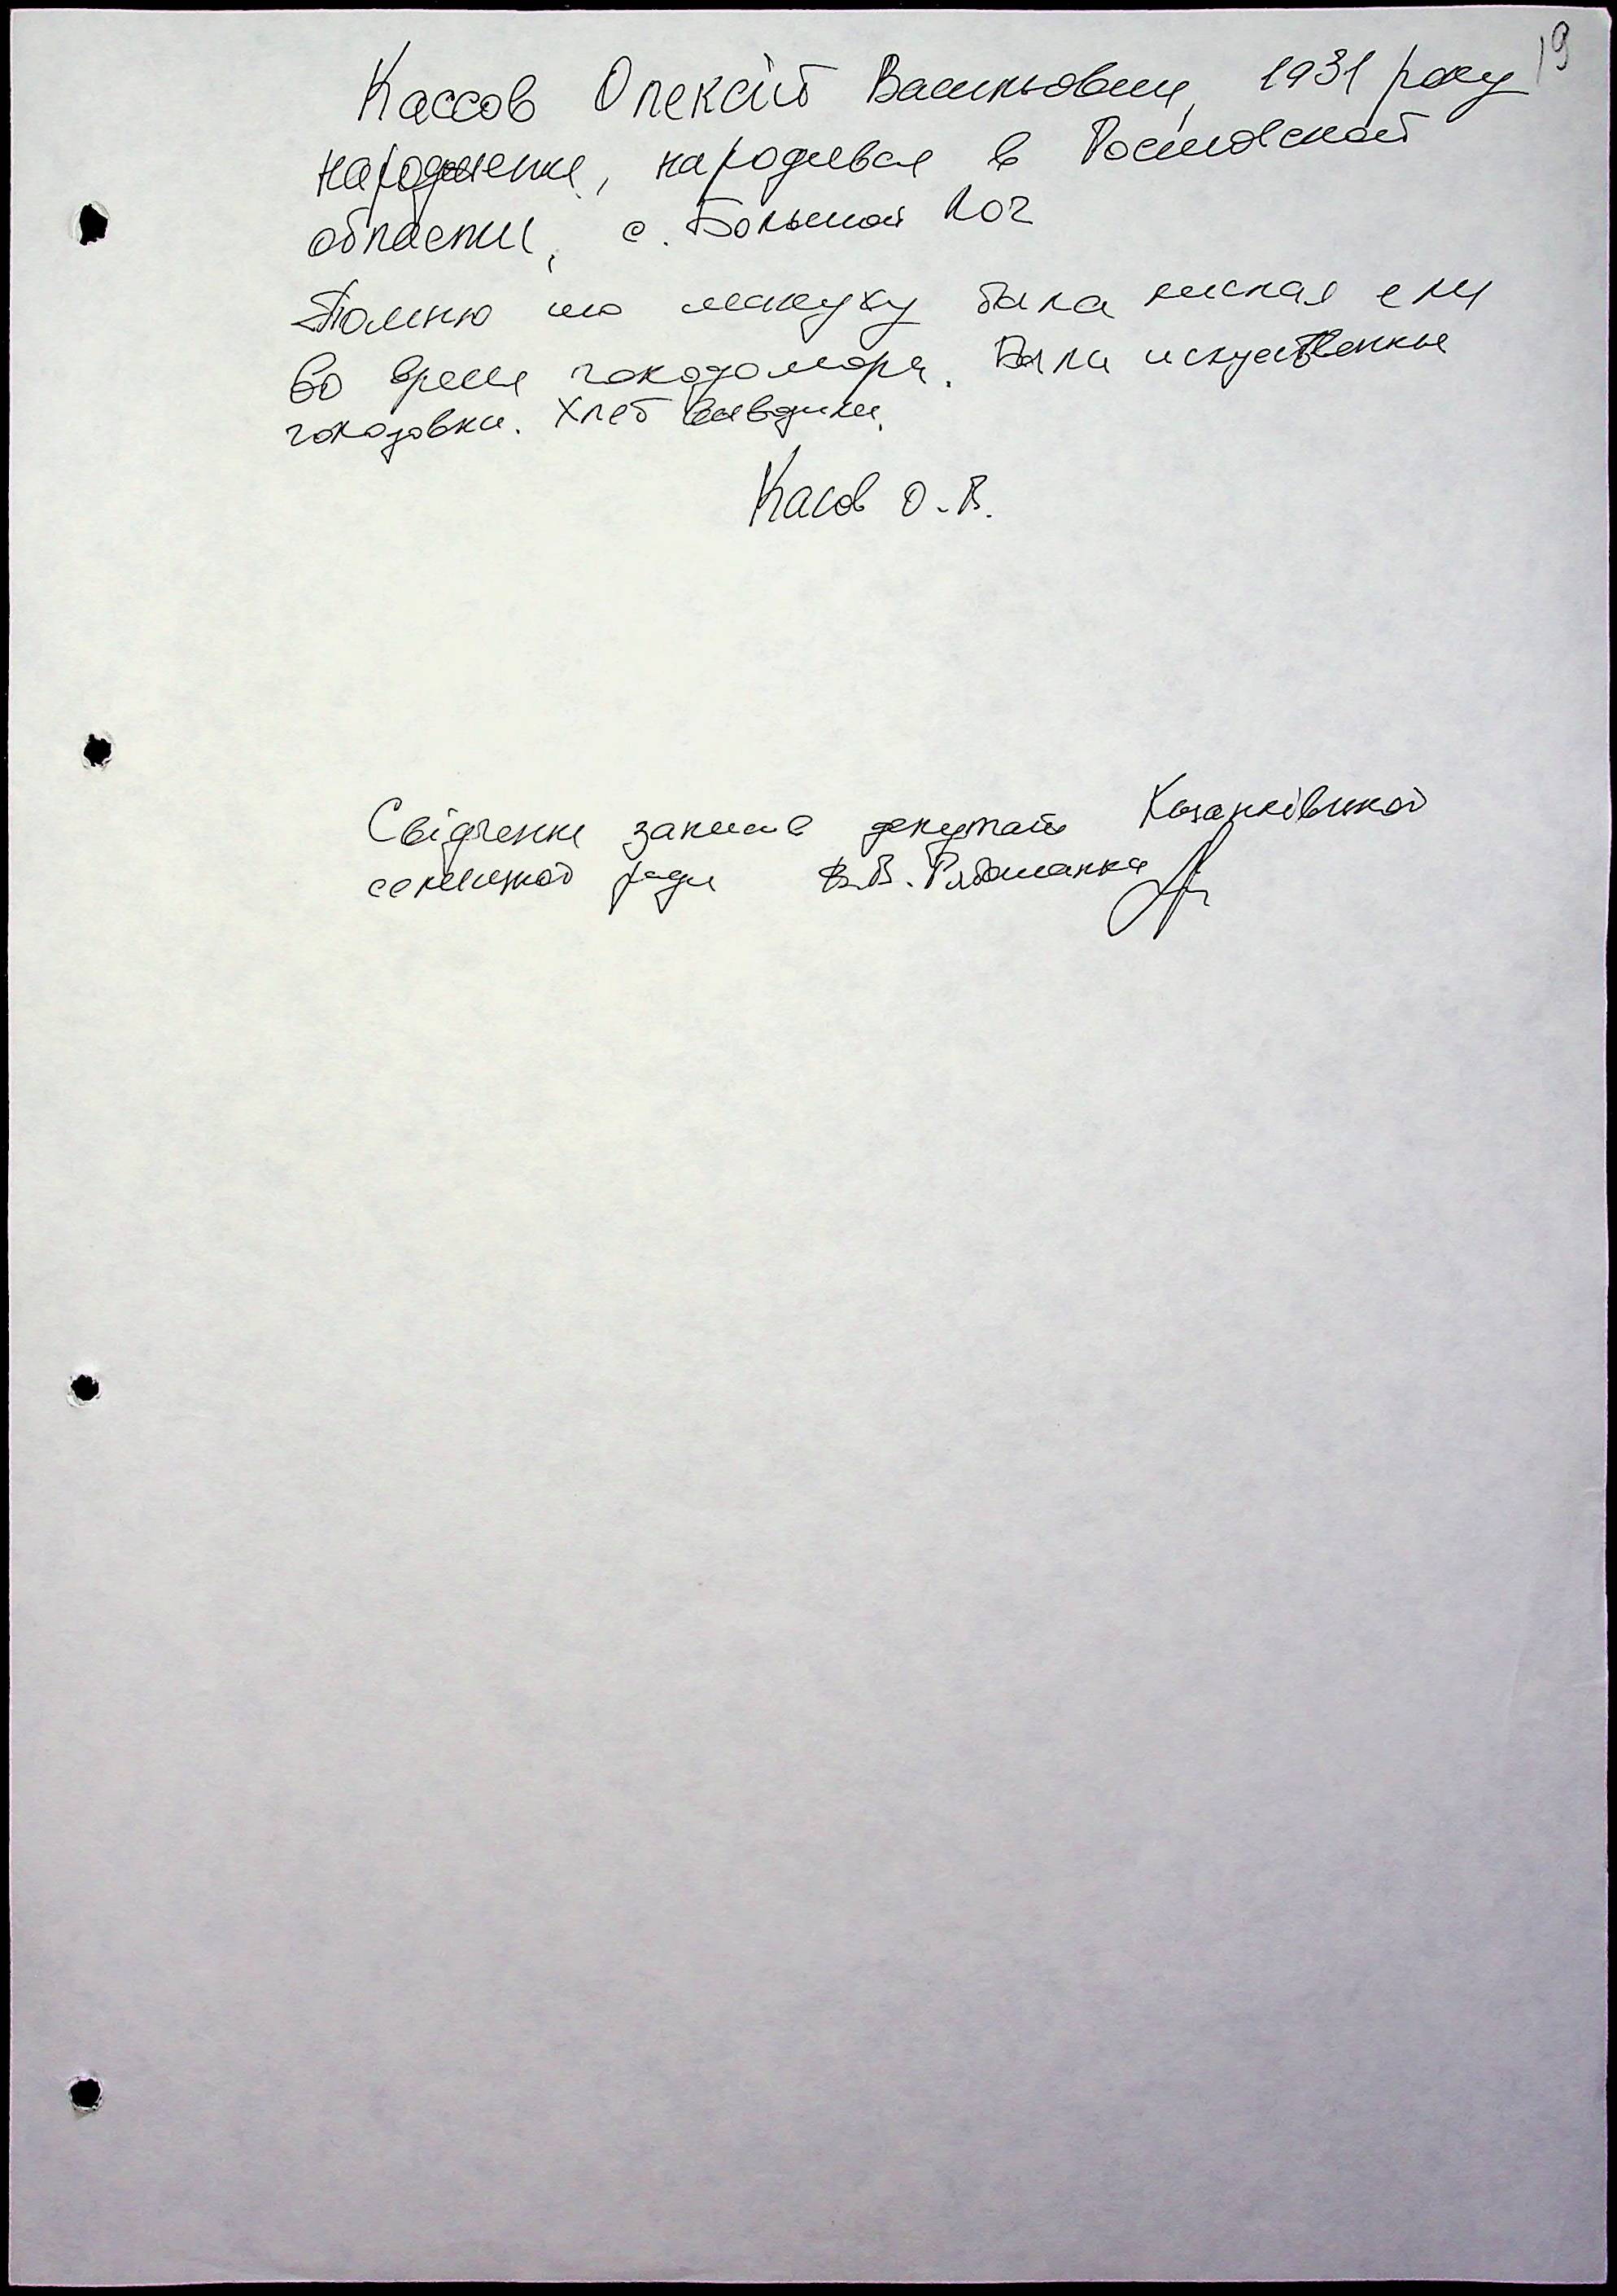 19
Кассов Олексій Васильович, 1931 року
народження, народився в Ростовской
области, с. Большой Лог
Помню шо макуху была кислая ели
во время голодомора. Были искуственные
голодовки. Хлеб вывозили.
Касов О.В.
Свідчення записав депутат Казанківської
селищної ради В.В. Рябошапка